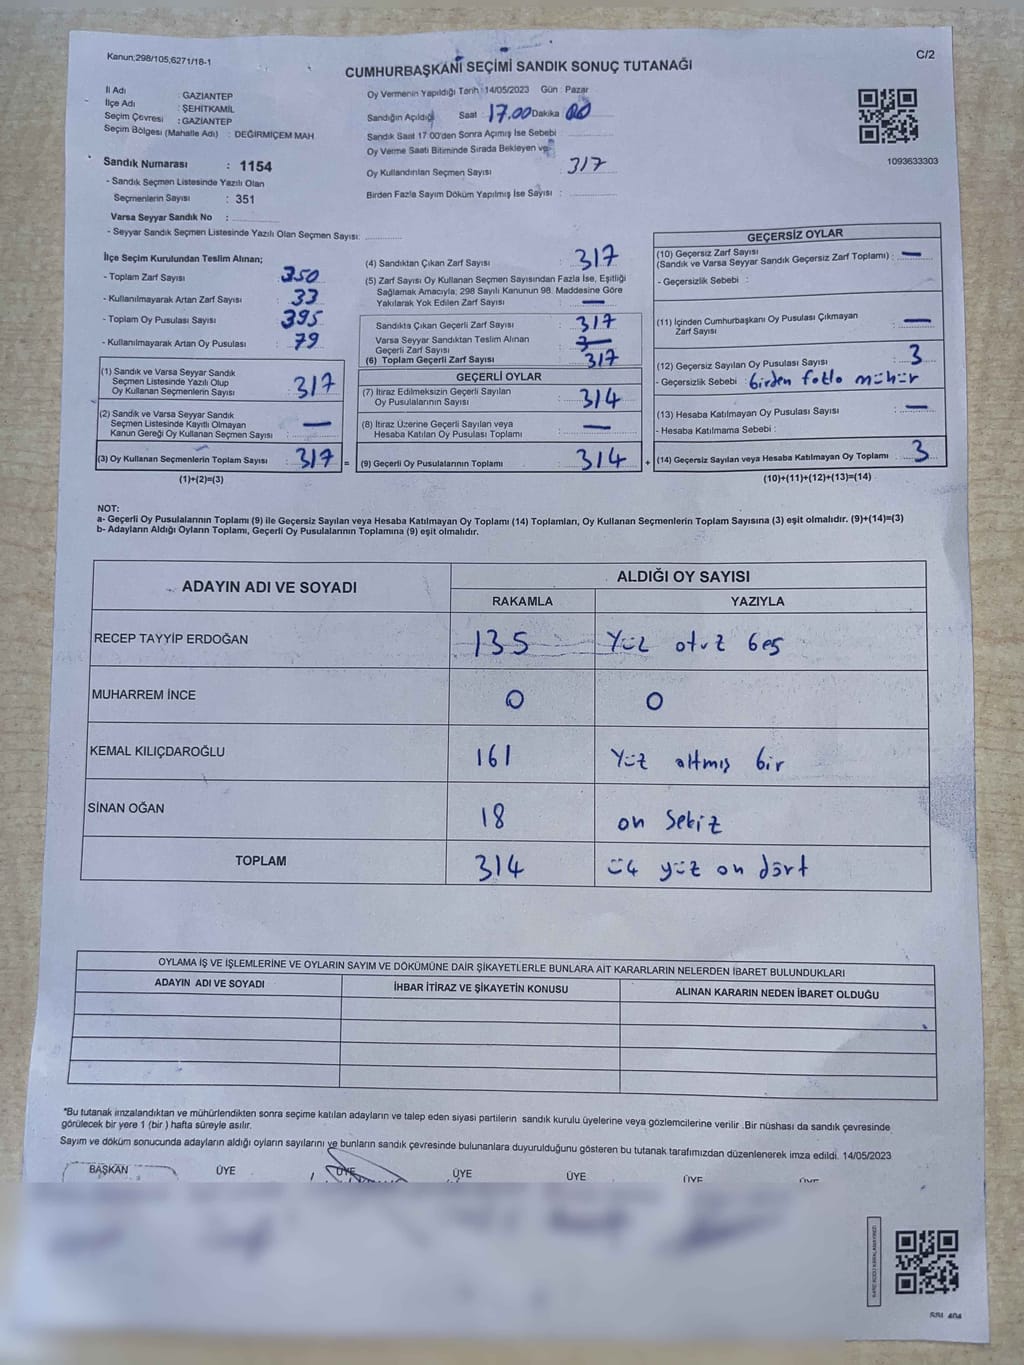 Kanun;298/105,6271/18-1
C/2
CUMHURBAŞKANI SEÇİMİ SANDIK SONUÇ TUTANAĞI
İl Adı : GAZİANTEP
İlçe Adı : ŞEHİTKAMİL
Seçim Çevresi : GAZİANTEP
Seçim Bölgesi (Mahalle Adı) : DEĞİRMİÇEM MAH.
Sandık Numarası : 1154
- Sandık Seçmen Listesinde Yazılı Olan
Seçmenlerin Sayısı : 351
Varsa Seyyar Sandık No :
- Seyyar Sandık Seçmen Listesinde Yazılı Olan Seçmen Sayısı:
Oy Vermenin Yapıldığı Tarih : 14/05/2023 Gün : Pazar
Sandığın Açıldığı Saat 17.00 Dakika 00
Sandık Saat 17:00'den Sonra Açımış İse Sebebi
Oy Verme Saati Bitiminde Sırada Bekleyen ve
Oy Kullandırılan Seçmen Sayısı : 317
Birden Fazla Sayım Döküm Yapılmış İse Sayısı :
1093633303
İlçe Seçim Kurulundan Teslim Alınan;
- Toplam Zarf Sayısı : 350
- Kullanılmayarak Artan Zarf Sayısı : 33
- Toplam Oy Pusulası Sayısı : 395
- Kullanılmayarak Artan Oy Pusulası : 79
(1) Sandık ve Varsa Seyyar Sandık
Seçmen Listesinde Yazılı Olup
Oy Kullanan Seçmenlerin Sayısı : 317
(2) Sandık ve Varsa Seyyar Sandık
Seçmen Listesinde Kayıtlı Olmayan
Kanun Gereği Oy Kullanan Seçmen Sayısı : —
(3) Oy Kullanan Seçmenlerin Toplam Sayısı : 317 =
(1)+(2)=(3)
(4) Sandıktan Çıkan Zarf Sayısı : 317
(5) Zarf Sayısı Oy Kullanan Seçmen Sayısından Fazla İse, Eşitliği
Sağlamak Amacıyla; 298 Sayılı Kanunun 98. Maddesine Göre
Yakılarak Yok Edilen Zarf Sayısı : —
Sandıkta Çıkan Geçerli Zarf Sayısı : 317
Varsa Seyyar Sandıktan Teslim Alınan
Geçerli Zarf Sayısı :
(6) Toplam Geçerli Zarf Sayısı : 317
GEÇERLİ OYLAR
(7) İtiraz Edilmeksizin Geçerli Sayılan
Oy Pusulalarının Sayısı : 314
(8) İtiraz Üzerine Geçerli Sayılan veya
Hesaba Katılan Oy Pusulası Toplamı : —
(9) Geçerli Oy Pusulalarının Toplamı : 314 +
GEÇERSİZ OYLAR
(10) Geçersiz Zarf Sayısı
(Sandık ve Varsa Seyyar Sandık Geçersiz Zarf Toplamı) : —
- Geçersizlik Sebebi :
(11) İçinden Cumhurbaşkanı Oy Pusulası Çıkmayan
Zarf Sayısı : —
(12) Geçersiz Sayılan Oy Pusulası Sayısı : 3
- Geçersizlik Sebebi : birden fazla mühür
(13) Hesaba Katılmayan Oy Pusulası Sayısı : —
- Hesaba Katılmama Sebebi :
(14) Geçersiz Sayılan veya Hesaba Katılmayan Oy Toplamı : 3
(10)+(11)+(12)+(13)=(14)
NOT:
a- Geçerli Oy Pusulalarının Toplamı (9) ile Geçersiz Sayılan veya Hesaba Katılmayan Oy Toplamı (14) Toplamları, Oy Kullanan Seçmenlerin Toplam Sayısına (3) eşit olmalıdır. (9)+(14)=(3)
b- Adayların Aldığı Oyların Toplamı, Geçerli Oy Pusulalarının Toplamına (9) eşit olmalıdır.
ADAYIN ADI VE SOYADI
ALDIĞI OY SAYISI
RAKAMLA YAZIYLA
RECEP TAYYİP ERDOĞAN 135 Yüz otuz beş
MUHARREM İNCE 0 0
KEMAL KILIÇDAROĞLU 161 Yüz altmış bir
SİNAN OĞAN 18 on Sekiz
TOPLAM 314 üç yüz on dört
OYLAMA İŞ VE İŞLEMLERİNE VE OYLARIN SAYIM VE DÖKÜMÜNE DAİR ŞİKAYETLERLE BUNLARA AİT KARARLARIN NELERDEN İBARET BULUNDUKLARI
ADAYIN ADI VE SOYADI İHBAR İTİRAZ VE ŞİKAYETİN KONUSU ALINAN KARARIN NEDEN İBARET OLDUĞU
*Bu tutanak imzalandıktan ve mühürlendikten sonra seçime katılan adayların ve talep eden siyasi partilerin sandık kurulu üyelerine veya gözlemcilerine verilir .Bir nüshası da sandık çevresinde
görülecek bir yere 1 (bir ) hafta süreyle asılır.
Sayım ve döküm sonucunda adayların aldığı oyların sayılarını ve bunların sandık çevresinde bulunanlara duyurulduğunu gösteren bu tutanak tarafımızdan düzenlenerek imza edildi. 14/05/2023
BAŞKAN ÜYE ÜYE ÜYE ÜYE ÜYE ÜYE